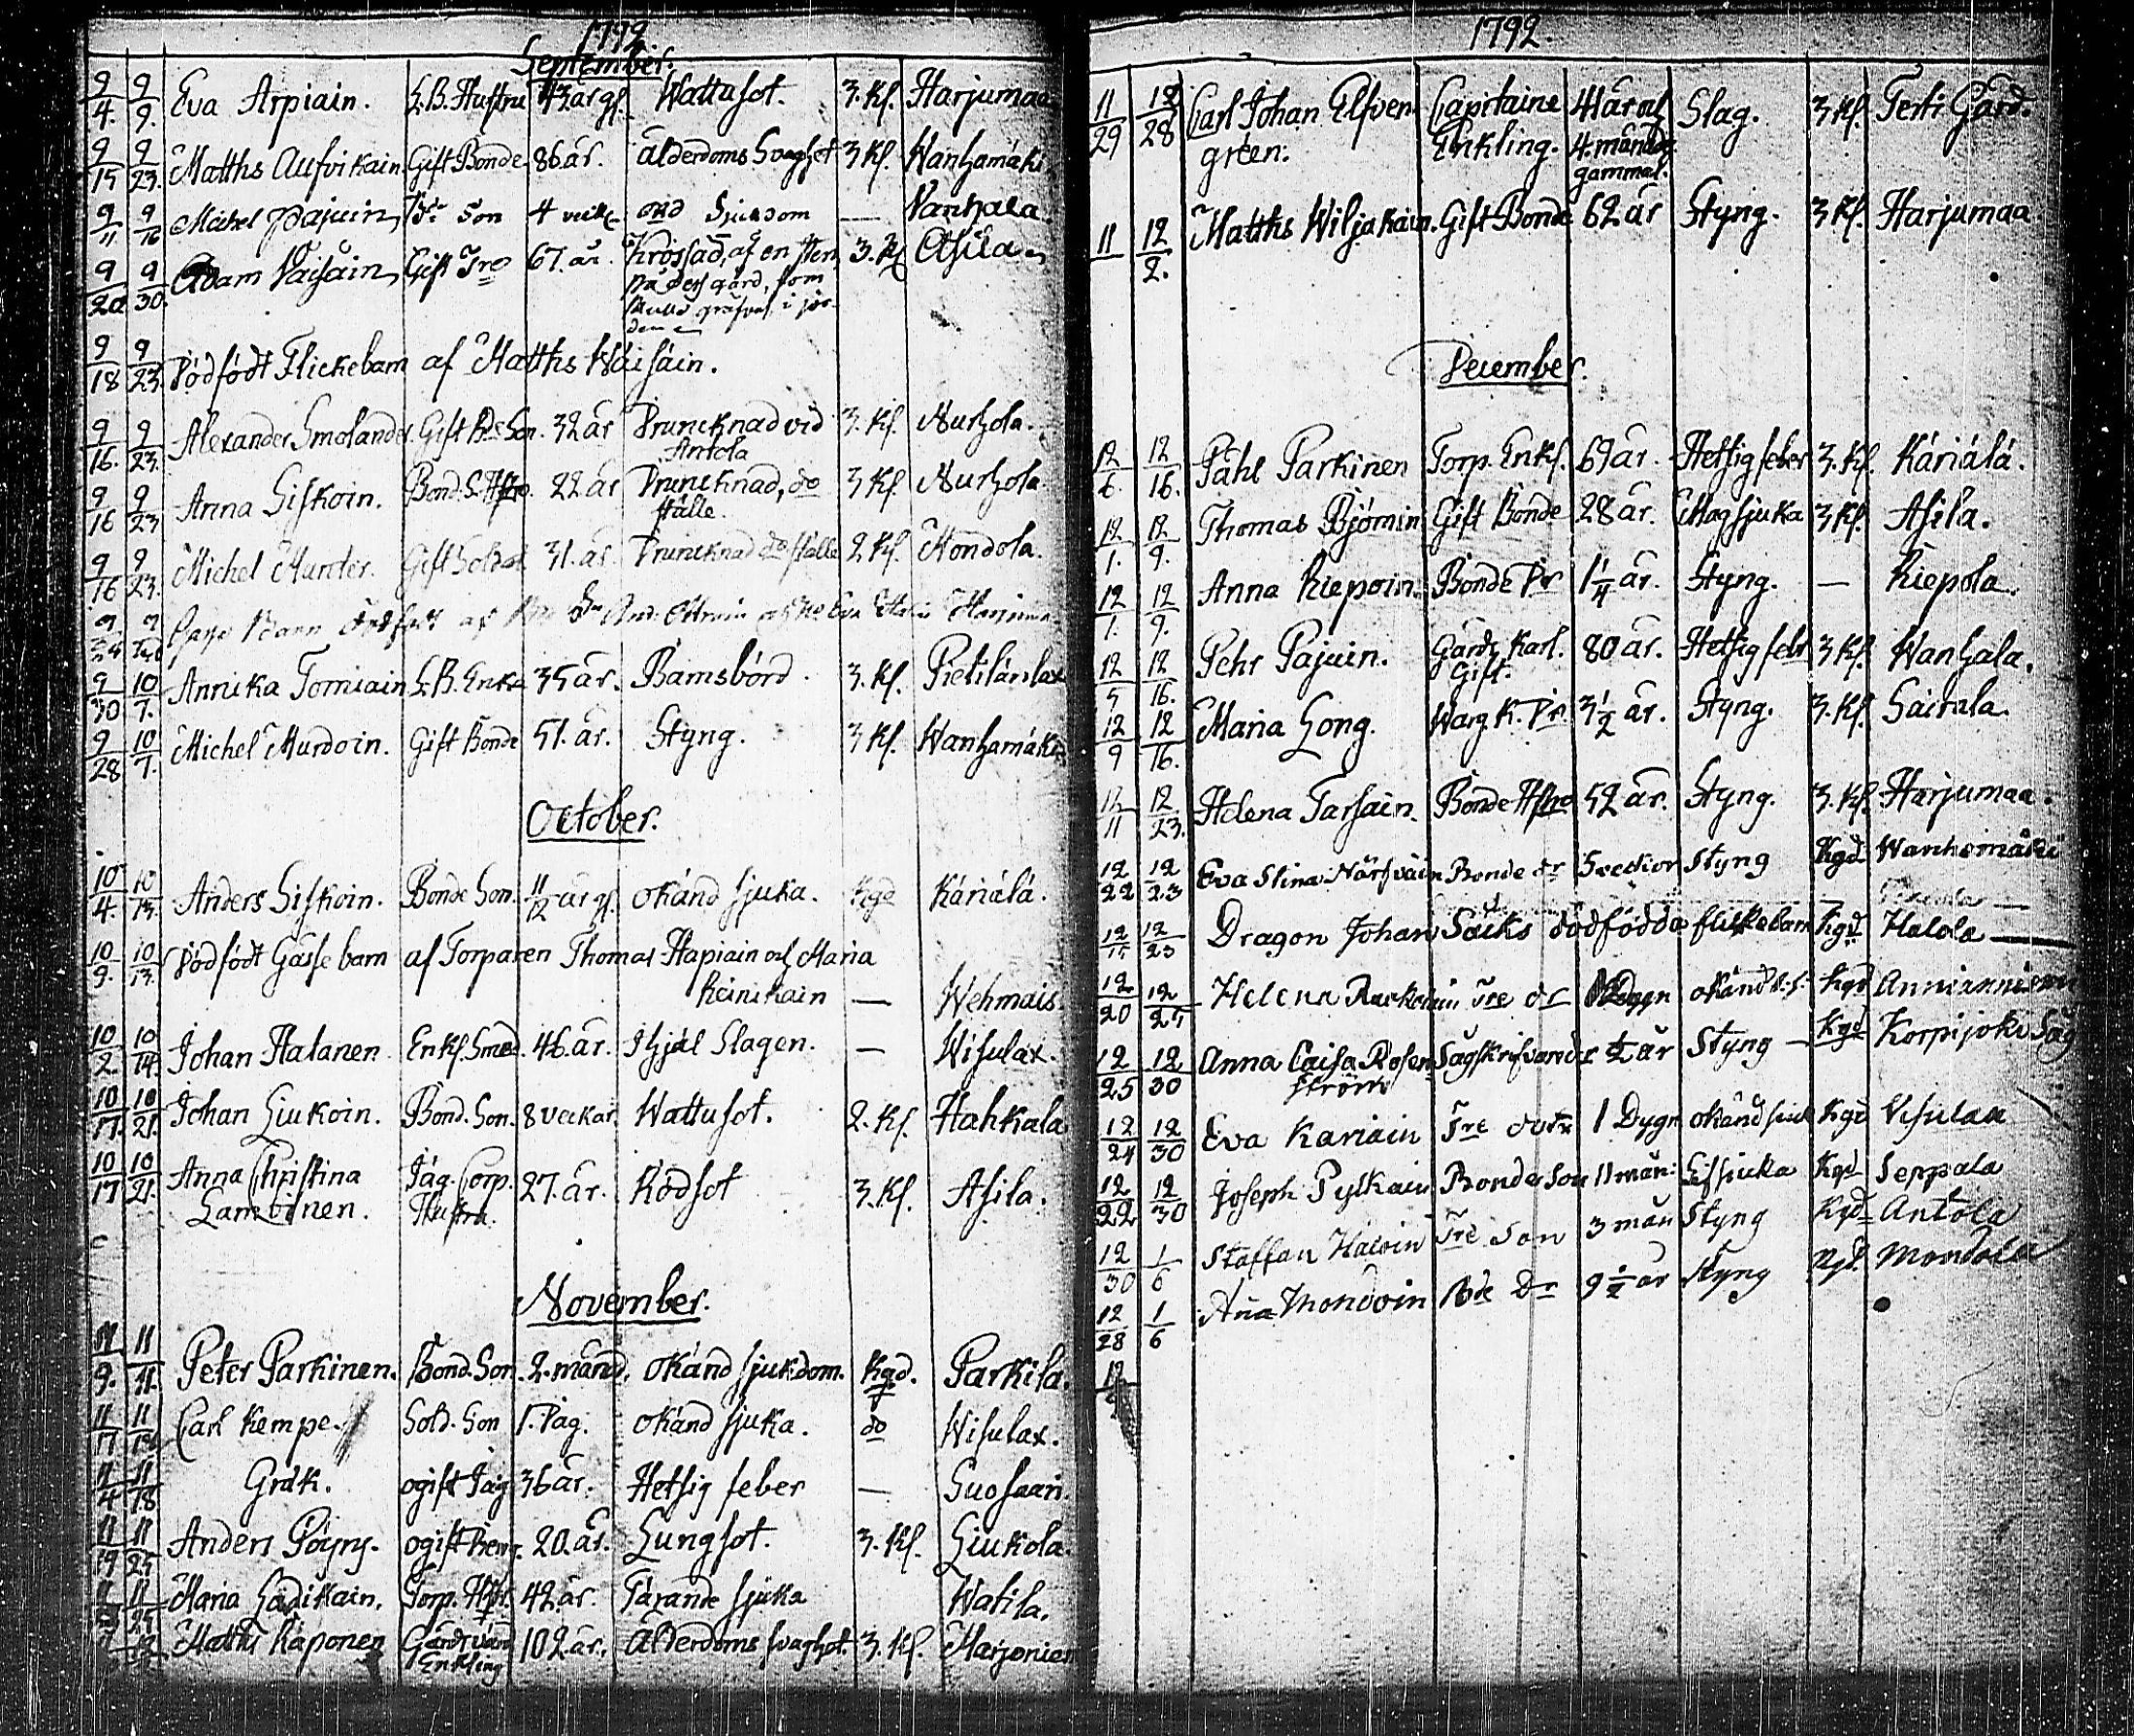 1792.
September.
9/4. 9/9. Eva Arpiain. L.B. Hustru 43. år gl. Wattusot. 3. Kl. Harjumaa
9/15 9/23. Matths Aufvikain. Gift Bonde 86 år. Ålderdoms Svaghet 3 Kl. Wanhamäki
9/11 9/16 Michel Pajuin Bde Son 4 veck ond Sjukdom — Vanhala
9/20 9/30. Adam Väisäin Gift Tre 67. år. Krossad, af en sten 3. Kl Asila
på dess gård, som
skulle grafvas i jor-
den
9/18 9/23. Dödfödt Flickebarn af Matths Wäisäin.
9/16. 9/23. Alexander Smolander. Gift Bde Son. 32 år Druncknad vid 3. Kl. Nurhola.
Antola
9/16 9/23 Anna Siskoin. Bond. S. Hstro. 22 år Druncknad, do 3 Kl. Nurhola
ställe.
9/16 9/23. Michel Murder. Gift Soldat 31. år. Druncknad do ställe 2. Kl. Mondola.
9 9 Barn dödfödt af
9/30 10/7. Annika Torniain L.B. Enka 35 år. Barnsbörd. 3. Kl. Pietilänlax
9/28 10/7. Michel Murdoin. Gift Bonde 51. år. Styng. 3 Kl. Wanhamäki
October.
10/4. 10/13. Anders Siskoin. Bonde Son. 11/12 år gl. okänd sjuka. Kgd Käriälä.
10/9. 10/13. Dödfödt Gåsse barn af Torparen Thomas Hapiain och Maria
Reinikain — Wehmais.
10/2 10/14. Johan Halanen. Enkl. Smed. 46. år. Ihjäl Slagen. — Wisulax.
10/17. 10/21. Johan Liukoin. Bond. Son. 8 veckar Wattusot. 2. Kl. Hahkala
10/17 10/21. Anna Christina Jäg. Corp. 27. år. Rödsot 3. Kl. Asila.
Lamboinen. Hustru.
November.
11/9. 11/11. Peter Parkinen. Bond. Son. 2. månd. okänd sjukdom. Kgd. Parkila.
11/17 11/18 Carl Kempe. Sold. Son 1. Dag. okänd sjuka. do Wisulax.
11/4 11/18 Gräk. ogift Jäg 36 år. Hetsig feber — Suosaari.
11/19 11/25 Anders Pöyry. ogift Dreng. 20. år. Lungsot. 3. Kl. Liukola.
11 11/25 Maria Hädikain. Torp. Hstr. 42. år. Tärande sjuka Watila.
Matth Kaponen Gårdsvärd 102. år. Ålderdoms svaghet. 3. Kl. Marjonien
Enkling
1792.
11/29 12/28 Carl Johan Elfven Capitaine 41 år och Slag. 3 Kl. Terti Gård.
green. Enkling. 4. månader
gammal.
11 12/2. Matths Wiljakain. Gift Bonde 62 år Styng. 3 Kl. Harjumaa
December.
12/6. 12/16. Påhl Parkinen Torp. Enkl. 69 år. Hetsig feber 3. Kl. Käriälä.
12/1. 12/9. Thomas Björnin Gift Bonde 28 år. Magsjuka 3 Kl. Asila.
12/1. 12/9. Anna Riepoin. Bonde Dr 1 1/4 år. Styng. — Riepola.
12/5 12/16. Pehr Pajuin. Gårds Karl. 80 år. Hetsig feb 3 Kl. Wanhala.
Gift.
12/9 12/16. Maria Long. Warg K. Dr. 3 1/2 år. Styng. 3. Kl. Sairala.
12/11 12/23. Helena Tarsain. Bonde Hstro 52 år. Styng. 3. Kl. Harjumaa.
12/22 12/23 Eva Stina Närsväin Bonde dr 5 veckor Styng Kgd Wanhamäki
12/15 12/23 Dragon Johan Säcks dödfödda flickebarn Kgd Halola —
12/20 12/25 Helena Tre dr Dygn okänd s. Kgd Annianniemi
12/25 12/30 Anna Caisa Rosen Sågskrifvare dr 1/2 år Styng — Kgd Korpijoki Såg
ström
12/24 12/30 Eva Kariain Tre dotr 1 Dygn okänd siuk Kgd Visulax
12/22 12/30 Joseph Pylkäin Bonde Son 11 mån: Lifsiuka Kgd Seppälä
12/30 1/6 Staffan Haloin Tre Son 3 mån Styng Kgd Antola
12/28 1/6 Ana Mondoin Bde Dr 9 1/2 år Styng Kgd. Mondola
12